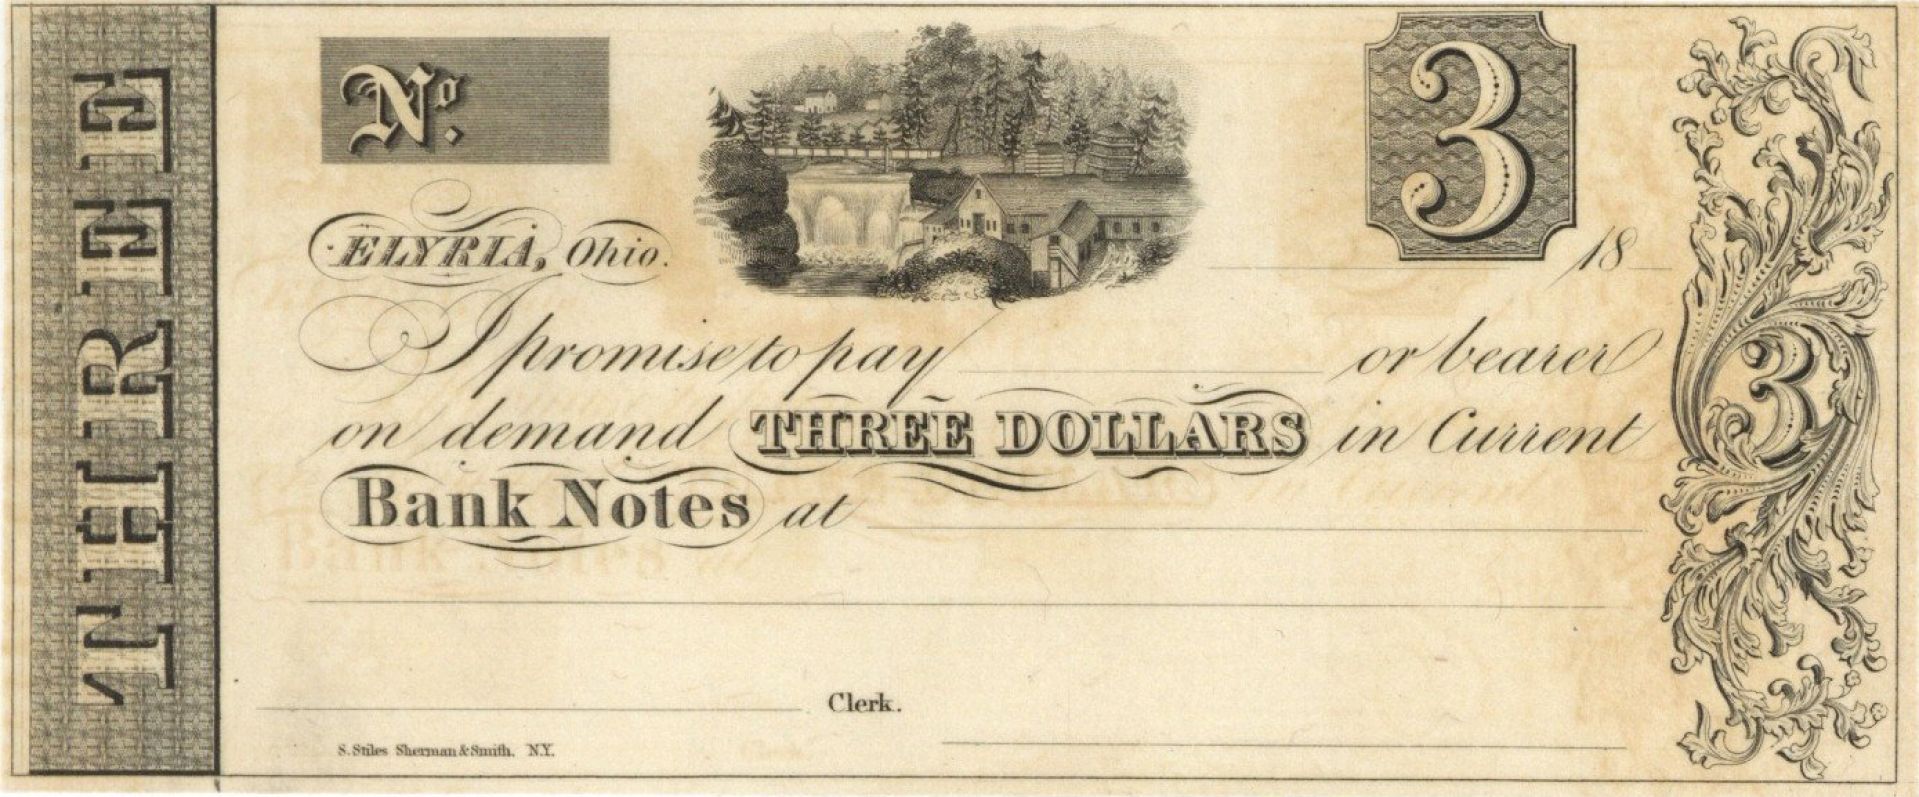 THREE
No.
3
ELYRIA, Ohio.
18
I promise to pay or bearer
on demand THREE DOLLARS in Current
Bank Notes at
3
Clerk.
S. Stiles Sherman & Smith. N.Y.